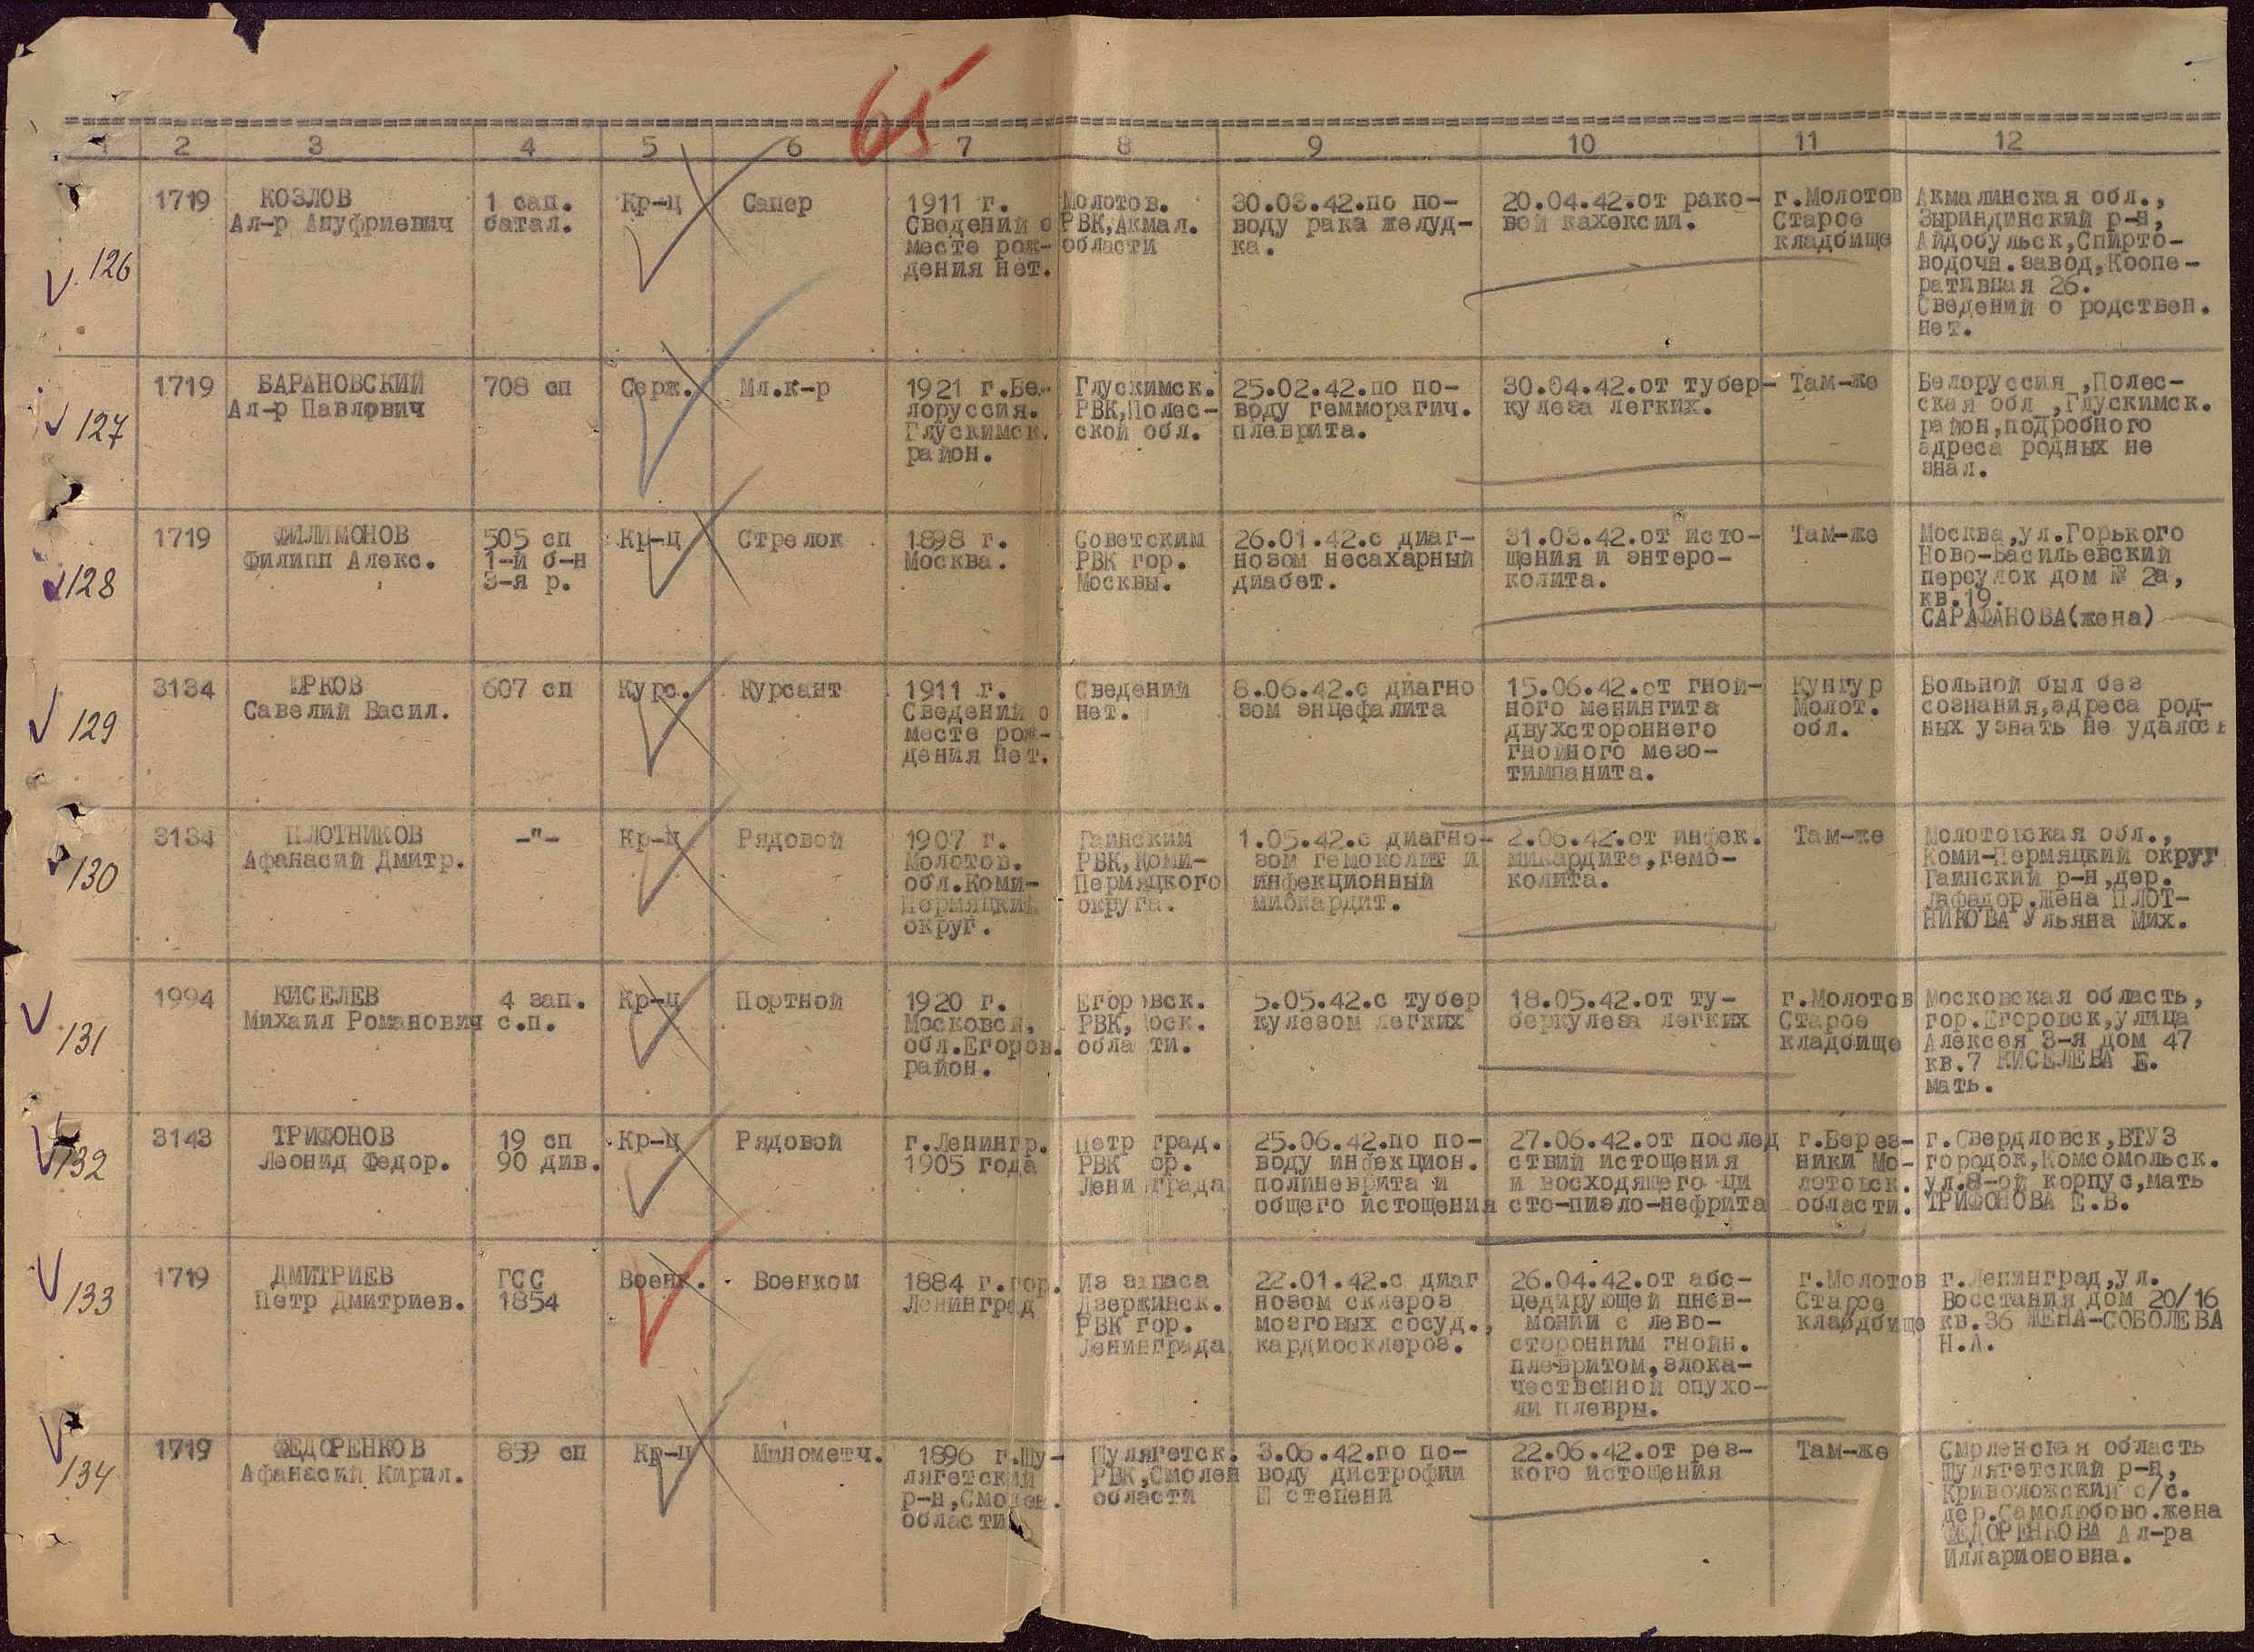 65
1 2 3 4 5 6 7 8 9 10 11 12
126
1719
КОЗЛОВ
Ал-р Ануфриевич
1 сап.
батал.
Кр-ц
Сапер
1911 г.
Сведений о
месте рож-
дения нет.
Молотов.
РВК,Акмал.
области
30.03.42.по по-
воду рака желуд-
ка.
20.04.42.от рако-
вой кахексии.
г.Молотов
Старое
кладбище
Акмалинская обл.,
Зыриндинский р-н,
Айдобульск,Спирто-
водочн.завод,Коопе-
ративная 26.
Сведений о родствен.
нет.
127
1719
БАРАНОВСКИЙ
Ал-р Павлович
708 сп
Серж.
Мл.к-р
1921 г.Бе-
лоруссия.
Глускимск.
район.
Глускимск.
РВК,Полес-
ской обл.
25.02.42.по по-
воду гемморагич.
плеврита.
30.04.42.от тубер-
кулеза легких.
Там-же
Белоруссия ,Полес-
ская обл ,Глускимск.
район,подробного
адреса родных не
знал.
128
1719
ФИЛИМОНОВ
Филипп Алекс.
505 сп
1-й б-н
3-я р.
Кр-ц
Стрелок
1898 г.
Москва.
Советским
РВК гор.
Москвы.
26.01.42.с диаг-
нозом несахарный
диабет.
31.03.42.от исто-
щения и энтеро-
колита.
Там-же
Москва,ул.Горького
Ново-Васильевский
переулок дом № 2а,
кв.19.
САРАФАНОВА(жена)
129
3134
ЮРКОВ
Савелий Васил.
607 сп
Курс.
Курсант
1911 г.
Сведений о
месте рож-
дения нет.
Сведений
нет.
8.06.42.с диагно
зом энцефалита
15.06.42.от гной-
ного менингита
двухстороннего
гнойного мезо-
тимпанита.
Кунгур
Молот.
обл.
Больной был без
сознания,адреса род-
ных узнать не удалось
130
3134
ПЛОТНИКОВ
Афанасий Дмитр.
-"-
Кр-ц
Рядовой
1907 г.
Молотов.
обл.Коми-
Пермяцкий
округ.
Гаинским
РВК,Коми-
Пермяцкого
округа.
1.05.42.с диагно-
зом гемоколит и
инфекционный
миокардит.
2.06.42.от инфек.
микардита,гемо-
колита.
Там-же
Молотовская обл.,
Коми-Пермяцкий округ
Гаинский р-н,дер.
Лафадор.жена ПЛОТ-
НИКОВА Ульяна Мих.
131
1994
КИСЕЛЕВ
Михаил Романович
4 зап.
с.п.
Кр-ц
Портной
1920 г.
Московск.
обл.Егоров.
район.
Егоровск.
РВК,Моск.
области.
5.05.42.с тубер
кулезом легких
18.05.42.от ту-
беркулеза легких
г.Молотов
Старое
кладбище
Московская область,
гор.Егоровск,улица
Алексея 3-я дом 47
кв.7 КИСЕЛЕВА Е.
мать.
132
3143
ТРИФОНОВ
Леонид Федор.
19 сп
90 див.
Кр-ц
Рядовой
г.Ленингр.
1905 года
Петр град.
РВК ор.
Лени града
25.06.42.по по-
воду инфекцион.
полиневрита и
общего истощения
27.06.42.от послед
ствий истощения
и восходящего ци
сто-пиэло-нефрита
г.Берез-
ники Мо-
лотовск.
области.
г.Свердловск,ВТУЗ
городок,Комсомольск.
ул.8-ой корпус,мать
ТРИФОНОВА Е.В.
133
1719
ДМИТРИЕВ
Петр Дмитриев.
ГСС
1854
Военк.
Военком
1884 г.гор.
Ленинград
Из запаса
Дзержинск.
РВК гор.
Ленинграда
22.01.42.с диаг
нозом склероз
мозговых сосуд.,
кардиосклероз.
26.04.42.от абс-
цедирующей пнев-
монии с лево-
сторонним гнойн.
плевритом,злока-
чественной опухо-
ли плевры.
г.Молотов
Старое
кладбище
г.Ленинград,ул.
Восстания дом 20/16
кв.36 ЖЕНА-СОБОЛЕВА
Н.А.
134
1719
ФЕДОРЕНКОВ
Афанасий Кирил.
859 сп
Кр-ц
Минометч.
1896 г.Шу-
лягетский
р-н,Смолен.
области
Шулягетск.
РВК,Смолен
области
3.06.42.по по-
воду дистрофии
Ш степени
22.06.42.от рез-
кого истощения
Там-же
Смоленская область
Шулягетский р-н,
Криволожский с/с.
дер.Самолюбово.жена
ФЕДОРЕНКОВА Ал-ра
Илларионовна.